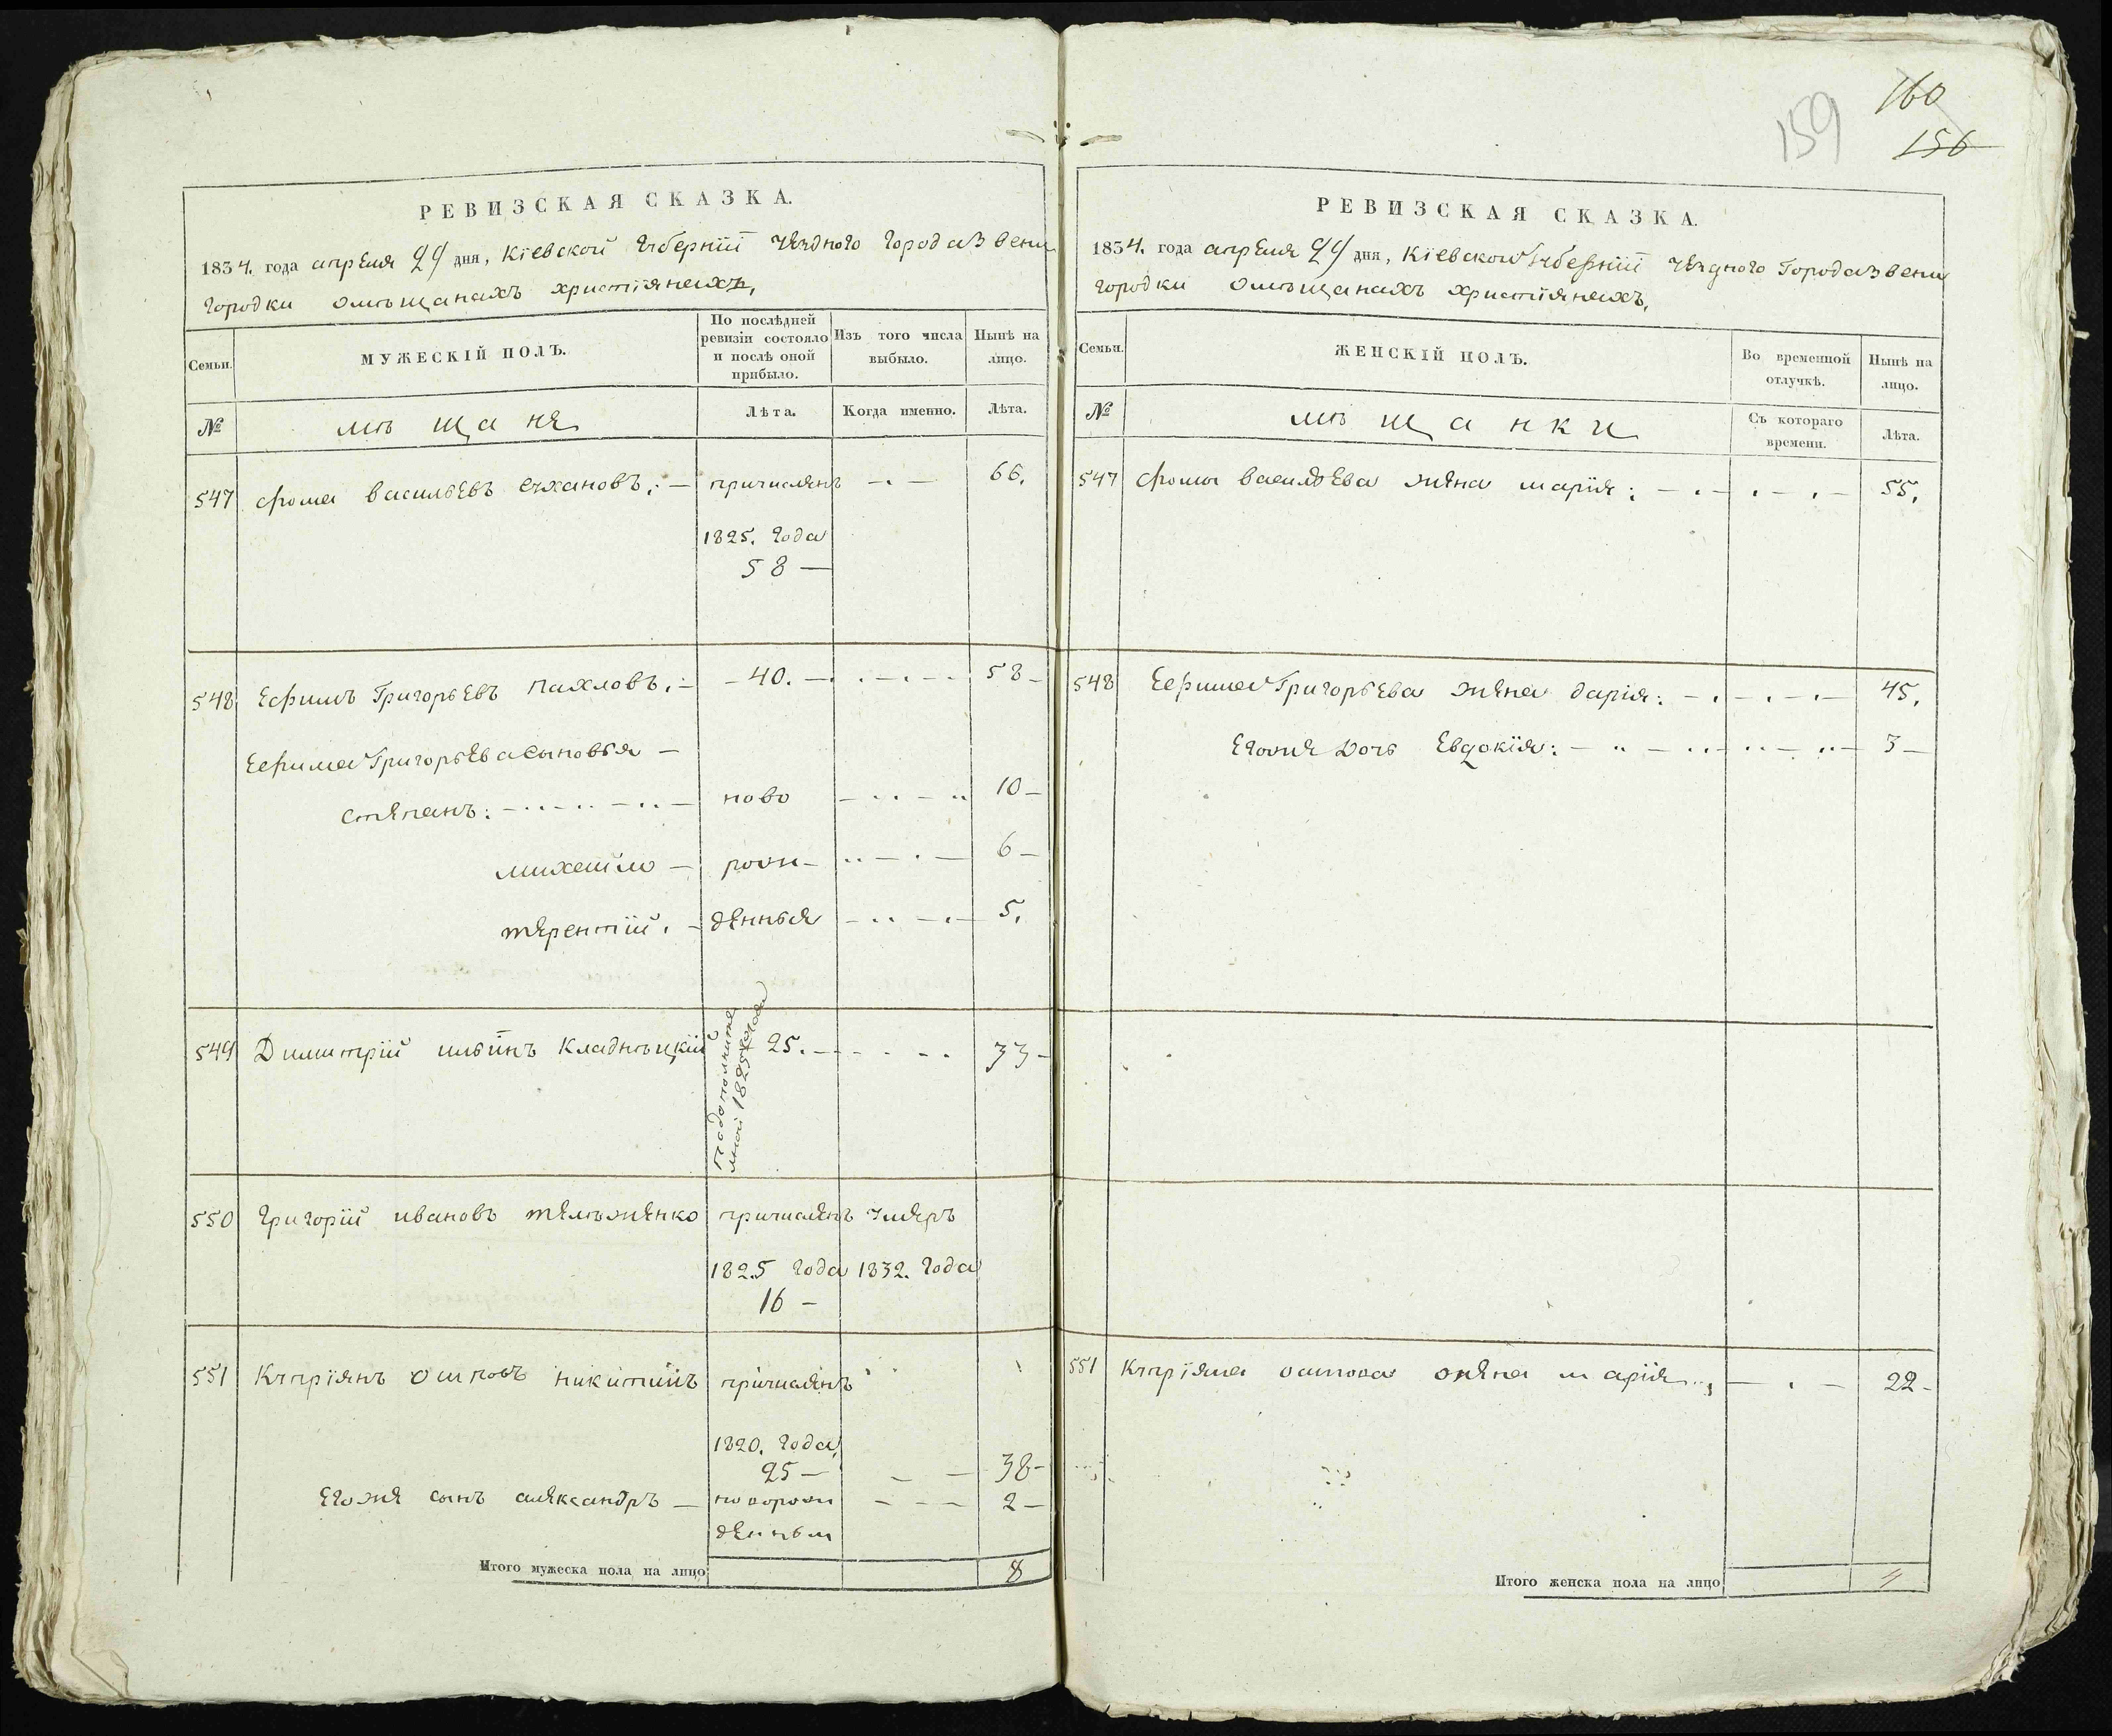 РЕВИЗСКАЯ СКАЗКА.
1834. года апреля 24 дня, Кіевской губерніи уезднаго города Звени
городки омѣщанахъ христіянахъ,
Семьи.
МУЖЕСКІЙ ПОЛЪ.
По послѣдней ревизіи состояло и послѣ оной прибыло.
Изъ того числа выбыло.
Нынѣ на лицо.
№
мѣщане
Лѣта.
Когда именно.
Лѣта.
547 Фома васильевъ причисленъ 66.
1825. года
58 —
548 Ефимъ Григорьевъ Пахловъ. — 40. — 58 —
Ефима Григорьева сыновья —
степанъ: ново 10 —
михайло — рож— 6 —
терентій. — денныя 5.
549 Димитрій ильинъ 25. — 33 —
1825 года
550 григорій ивановъ причисленъ умеръ
1825 года 1832. года
16 —
551 Купріянъ осиповъ никитинъ причисленъ
1820. года
25 — 38 —
Егоже сынъ александръ — новорож 2 —
денный
Итого мужеска пола на лицо 8
159
160
156
РЕВИЗСКАЯ СКАЗКА.
1834. года апреля 24 дня, Кіевской губерніи уезднаго города Звени
городки омѣщанахъ христіянахъ,
Семьи.
ЖЕНСКІЙ ПОЛЪ.
Во временной отлучкѣ.
Нынѣ на лицо.
№
мѣщанки
Съ котораго времени.
Лѣта.
547 Фомы васильева жена марія: 55.
548 Ефима Григорьева жена дарія: 45.
Егоже дочь Евдокія: 3 —
551 Купріяна осипова жена марія 22 —
Итого женска пола на лицо 4